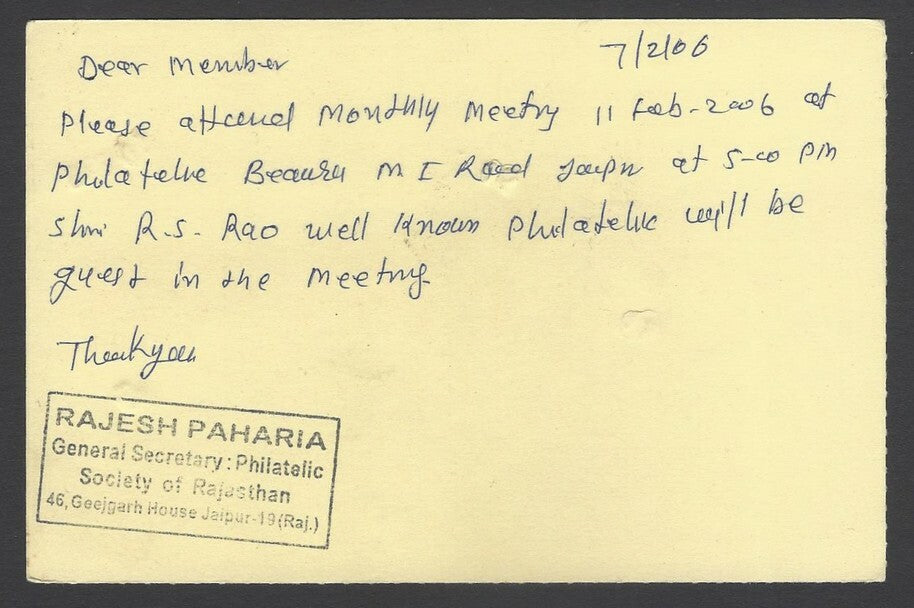 7/2/06
Dear Member
Please attend Monthly Meeting 11 Feb-2006 at
Philatelic Beauru M I Road Jaipur at 5-00 PM
Shri R.S. Rao well known Philatelic will be
guest in the Meeting
Thankyou
RAJESH PAHARIA
General Secretary: Philatelic
Society of Rajasthan
46, Geejgarh House Jaipur-19 (Raj.)